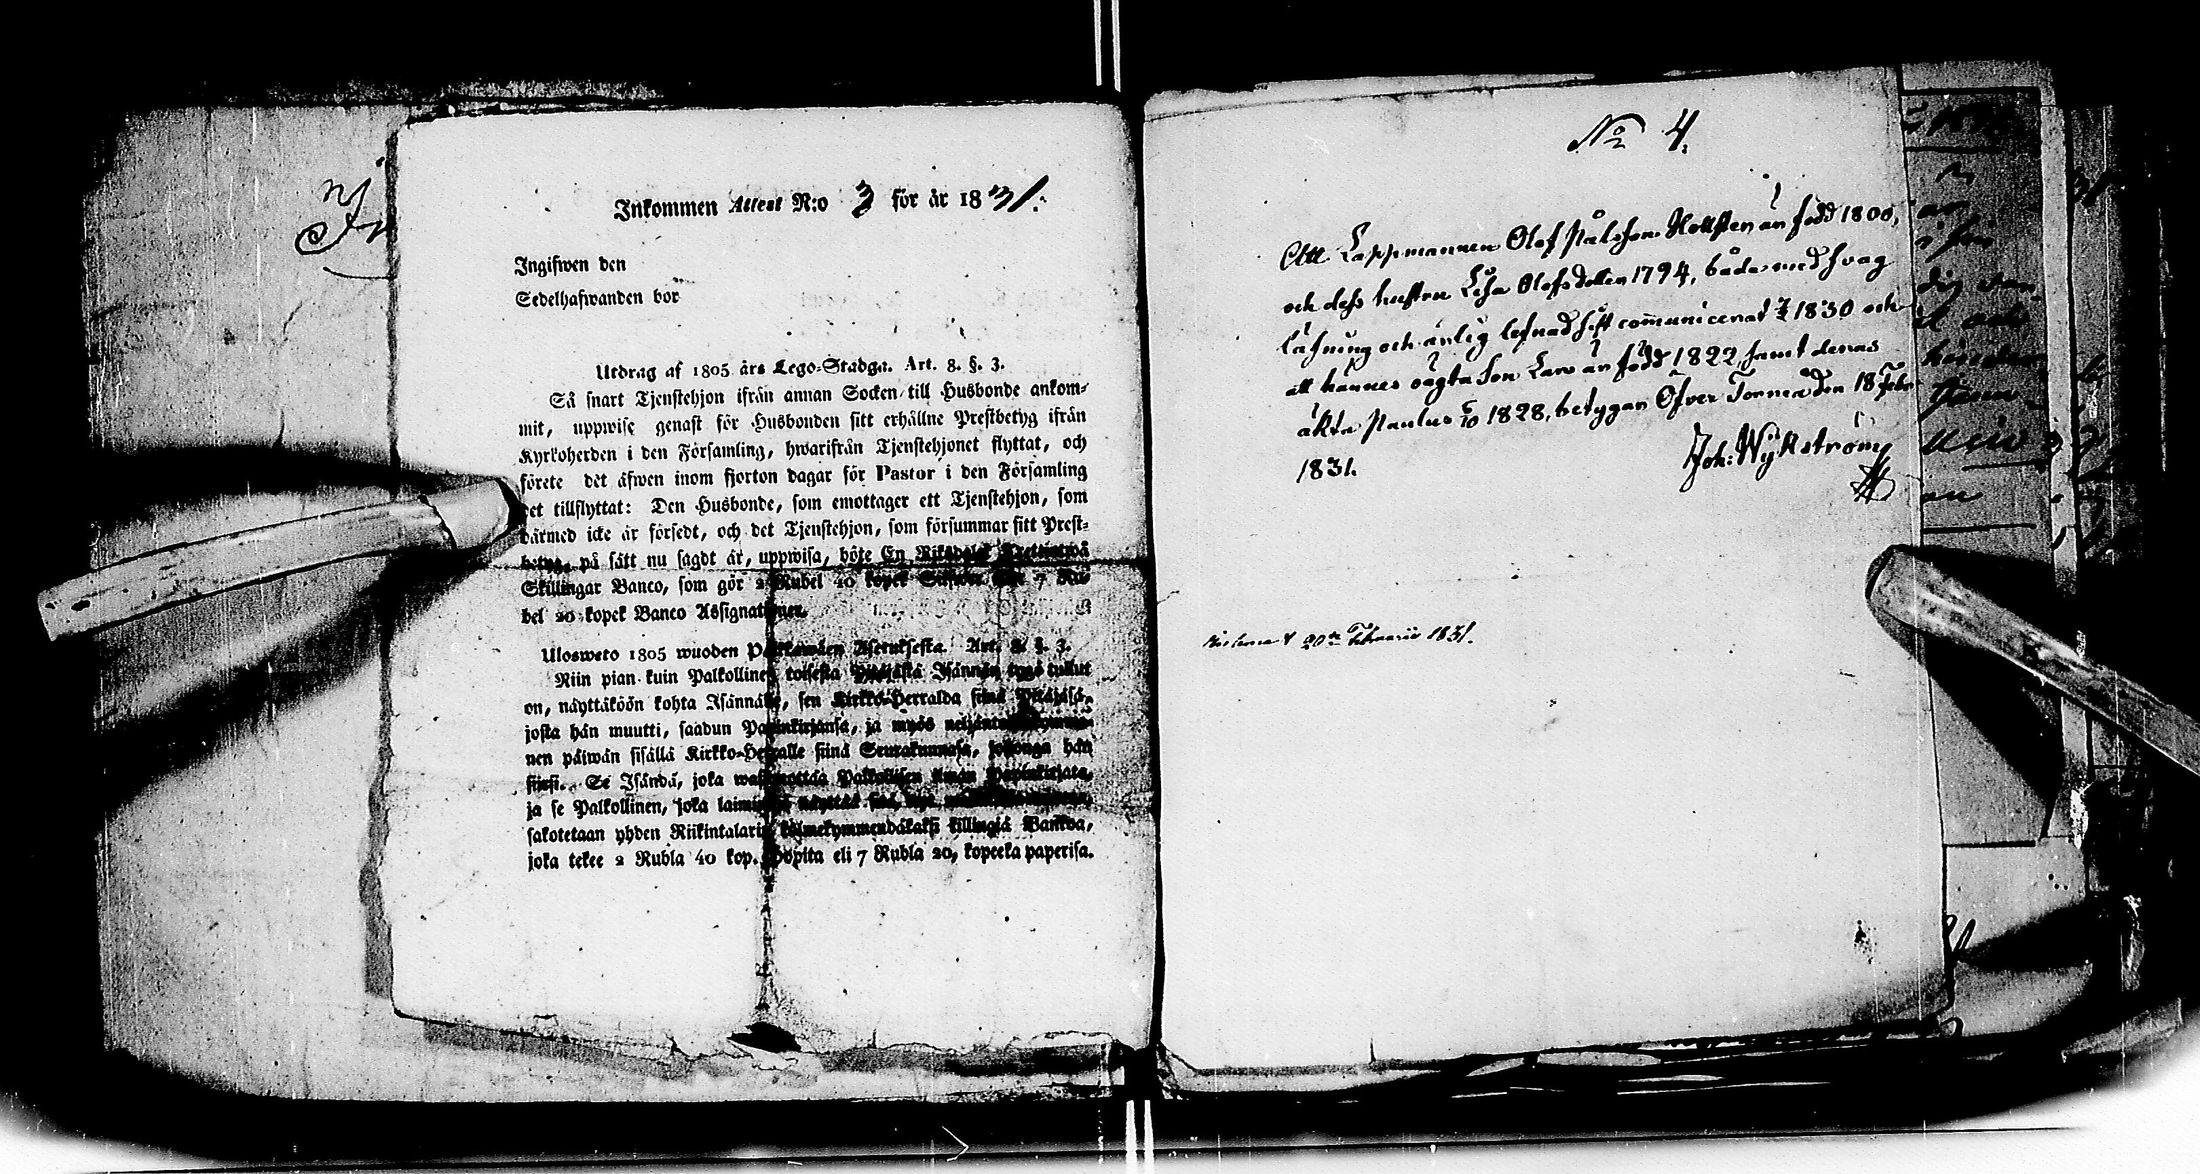 Inkommen Attest N:o 3 för år 1831.
Ingifwen den
Sedelhafwanden bor
Utdrag af 1805 års Lego-Stadga. Art. 8. §. 3.
Så snart Tjenstehjon ifrån annan Socken till Husbonde ankom-
mit, uppwise genast för Husbonden sitt erhållne Prestbetyg ifrån
Kyrkoherden i den Församling, hwarifrån Tjenstehjonet flyttat, och
förete det äfwen inom fjorton dagar för Pastor i den Församling
det tillflyttat: Den Husbonde, som emottager ett Tjenstehjon, som
därmed icke är försedt, och det Tjenstehjon, som försummar sitt Prest-
betyg, på sätt nu sagdt är, uppwisa, böte En Riksdaler Trettiotwå
Skillingar Banco, som gör 2 Rubel 40 kopek Silfwer 7 Ru-
bel 20 kopek Banco Assignationer.
Ulosweto 1805 wuoden Palkkawäen Asetuksesta. Art. 8. §. 3.
Niin pian kuin Palkollinen toisesta Pitäjästä Isännän tygö tullut
on, näyttäköön kohta Isännälle, sen Kirkko-Herralda siinä Pitäjäsä,
josta hän muutti, saadun Papinkirjansa, ja myös neljäntoistkymme-
nen päiwän sisällä Kirkko-Herralle siinä Seurakunnasa, johonga hän
siirsi. Se Isändä, joka wastaottaa Palkollisen ilman Papinkirjata,
ja se Palkollinen, joka laimin näyttää sitä, nyt
sakotetaan yhden Riikintalarin kolmekymmendäkaksi killingiä Bankoa,
joka tekee 2 Rubla 40 kop. Hopita eli 7 Rubla 20, kopeeka paperisa.
No 4.
Att Lappmannen Olof Pålsson Hollsten är född 1800,
och dess hustru Lisa Olofsdotter 1794, både med svag
läsning och ärlig lefnad sist communicerat 1830 och
att hannes oägta Son Lars är född 1822 samt deras
äkta Paulus 5/10 1828, betygar Öfver Torneå den 18 Febr.
1831.
Joh: Wykström
20 Februarii 1831.